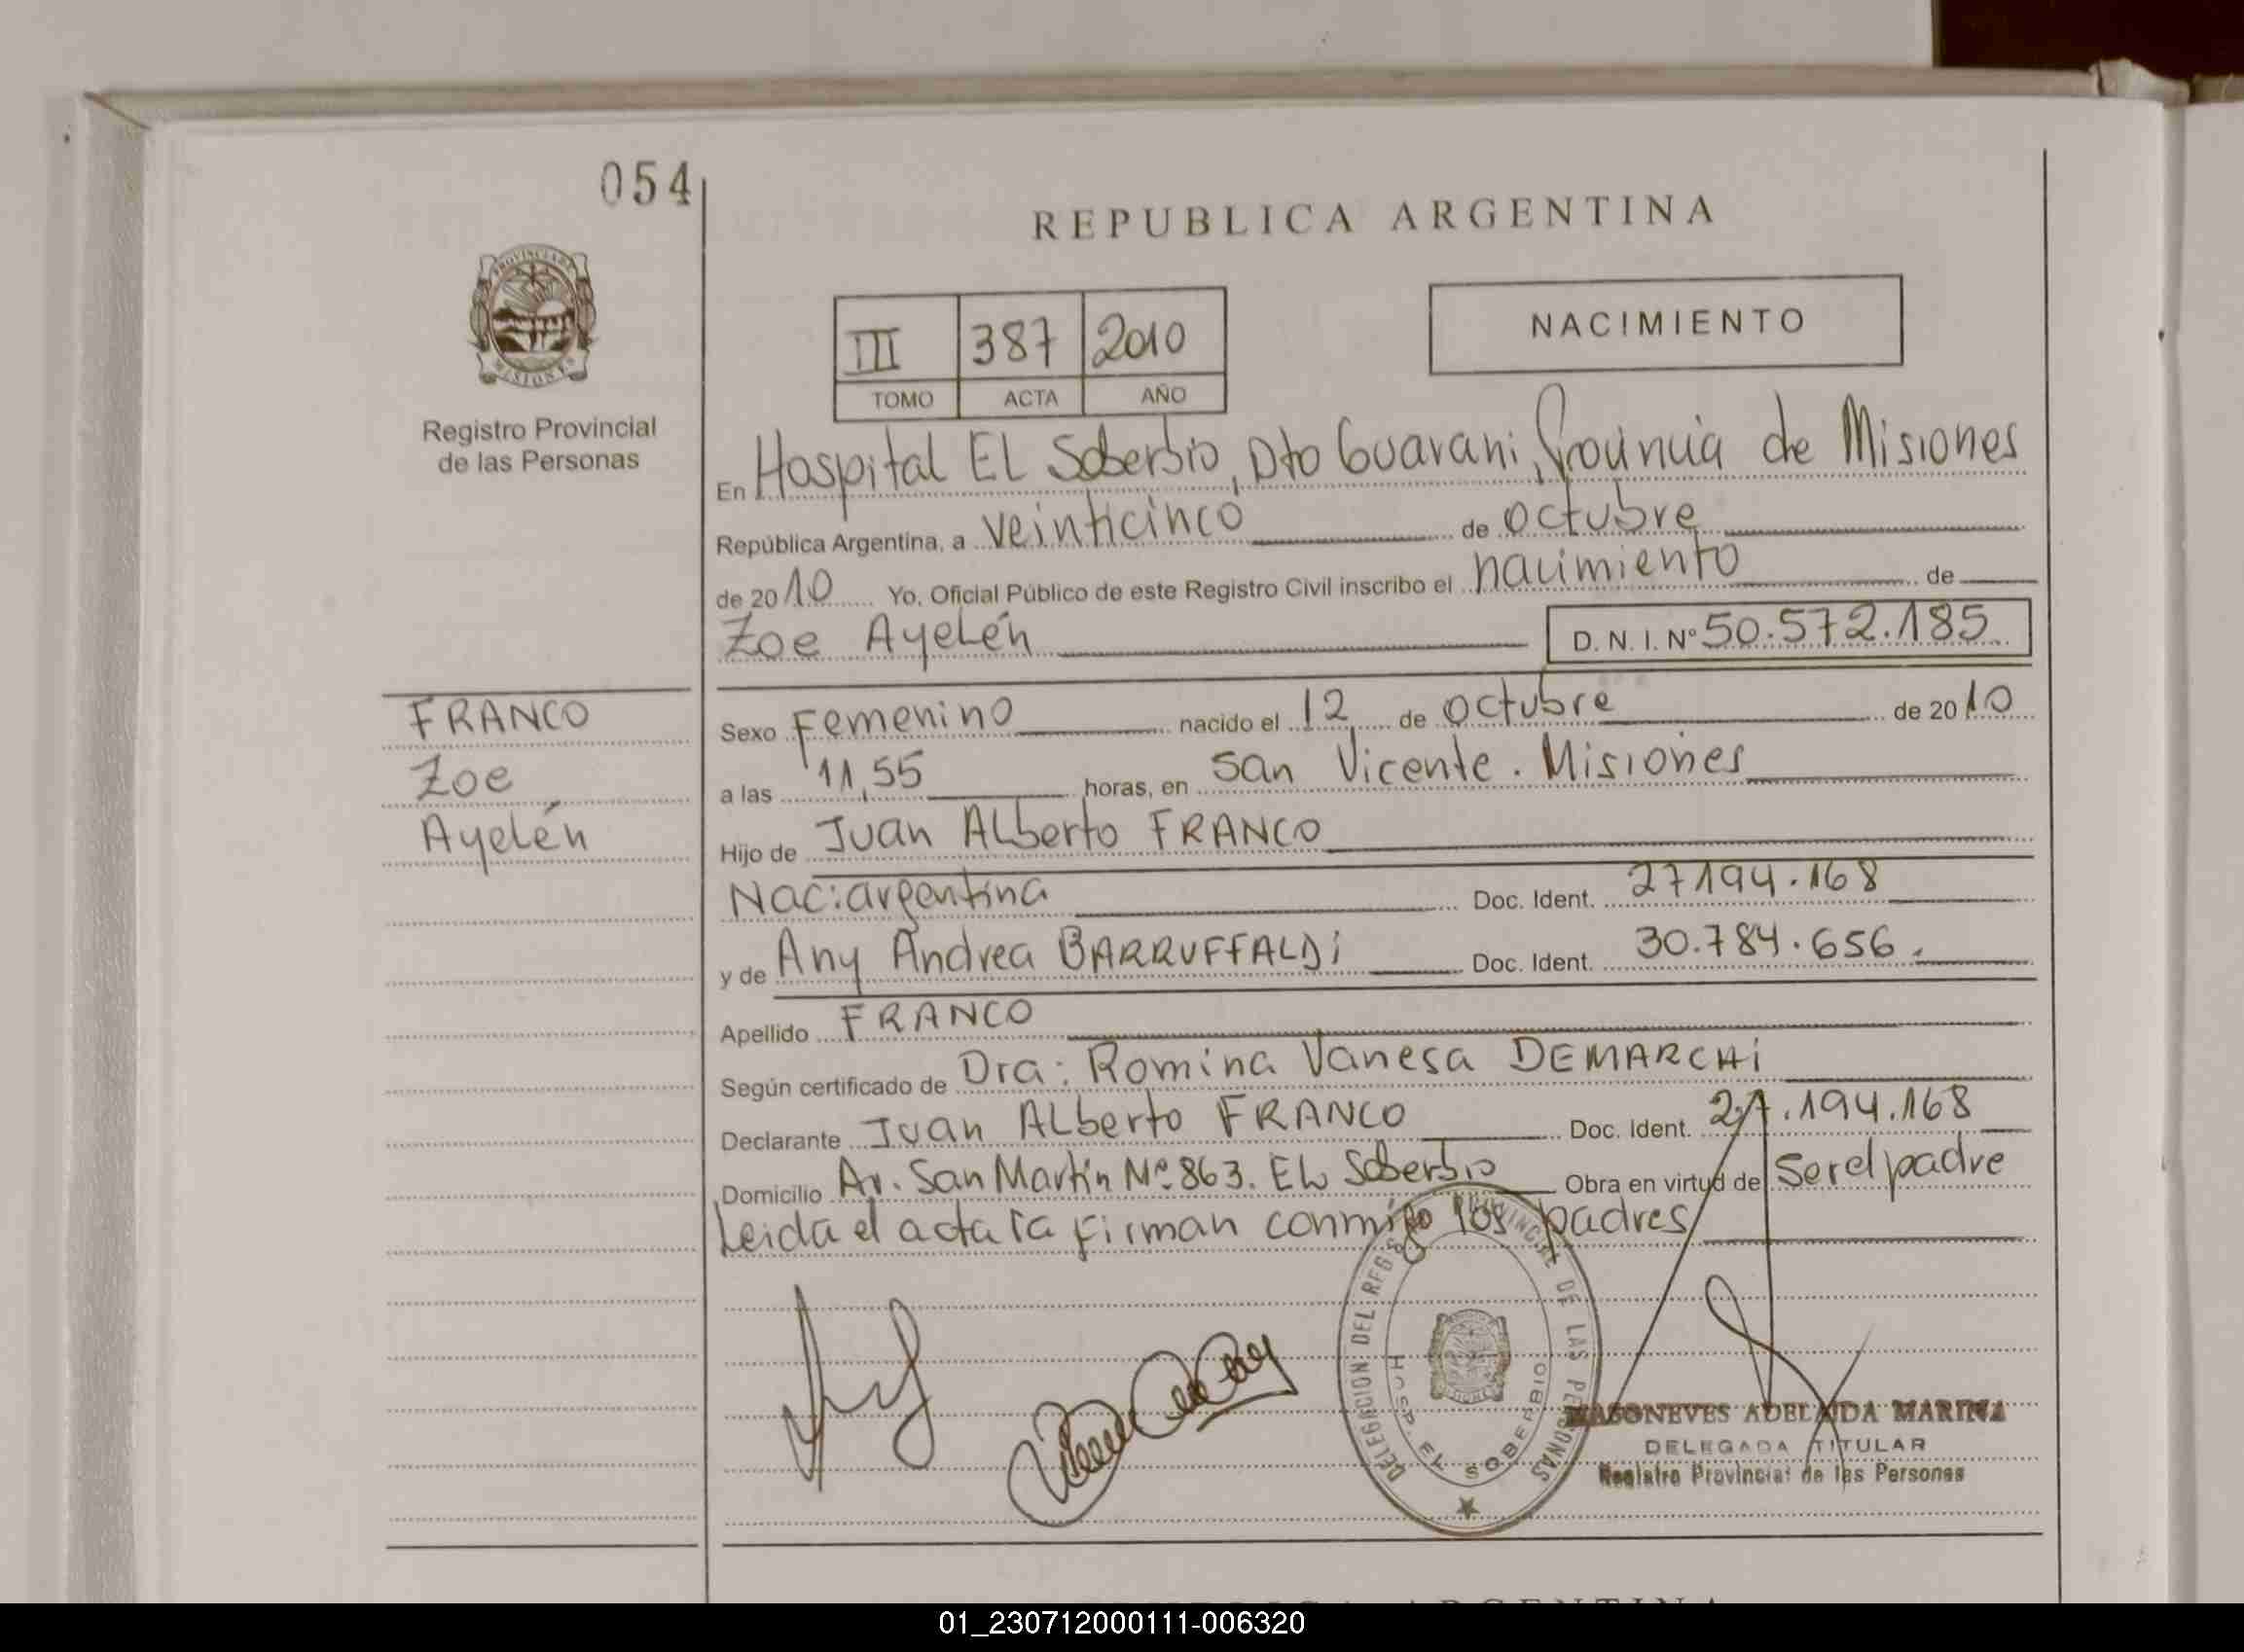 054
REPUBLICA ARGENTINA
PROVINCIA DE
MISIONES
Registro Provincial
de las Personas
III 387 2010
TOMO ACTA AÑO
NACIMIENTO
En Hospital EL Soberbio, Dto Guarani, Provincia de Misiones
República Argentina, a veinticinco de octubre
de 2010 Yo, Oficial Público de este Registro Civil inscribo el nacimiento de
Zoe Ayelén D. N. I. Nº 50.572.185
FRANCO
Zoe
Ayelén
Sexo Femenino nacido el 12 de octubre de 2010
a las 11,55 horas, en San Vicente. Misiones
Hijo de Juan ALberto FRANCO
Nac: argentina Doc. Ident. 27194.168
y de Any Andrea BARRUFFALDi Doc. Ident. 30.784.656.
Apellido FRANCO
Según certificado de Dra: Romina Vanesa DEMARCHi
Declarante Juan ALberto FRANCO Doc. Ident. 27.194.168
Domicilio Av. San Martín Nº 863. EL Soberbio Obra en virtud de ser el padre
Leida el acta la firman conmigo los padres
DELEGACION DEL REG PROVINCIAL DE LAS PERSONAS
HOSP. EL SOBERBIO
MASONEVES ADELAIDA MARINA
DELEGADA TITULAR
Registro Provincial de las Personas
01_230712000111-006320